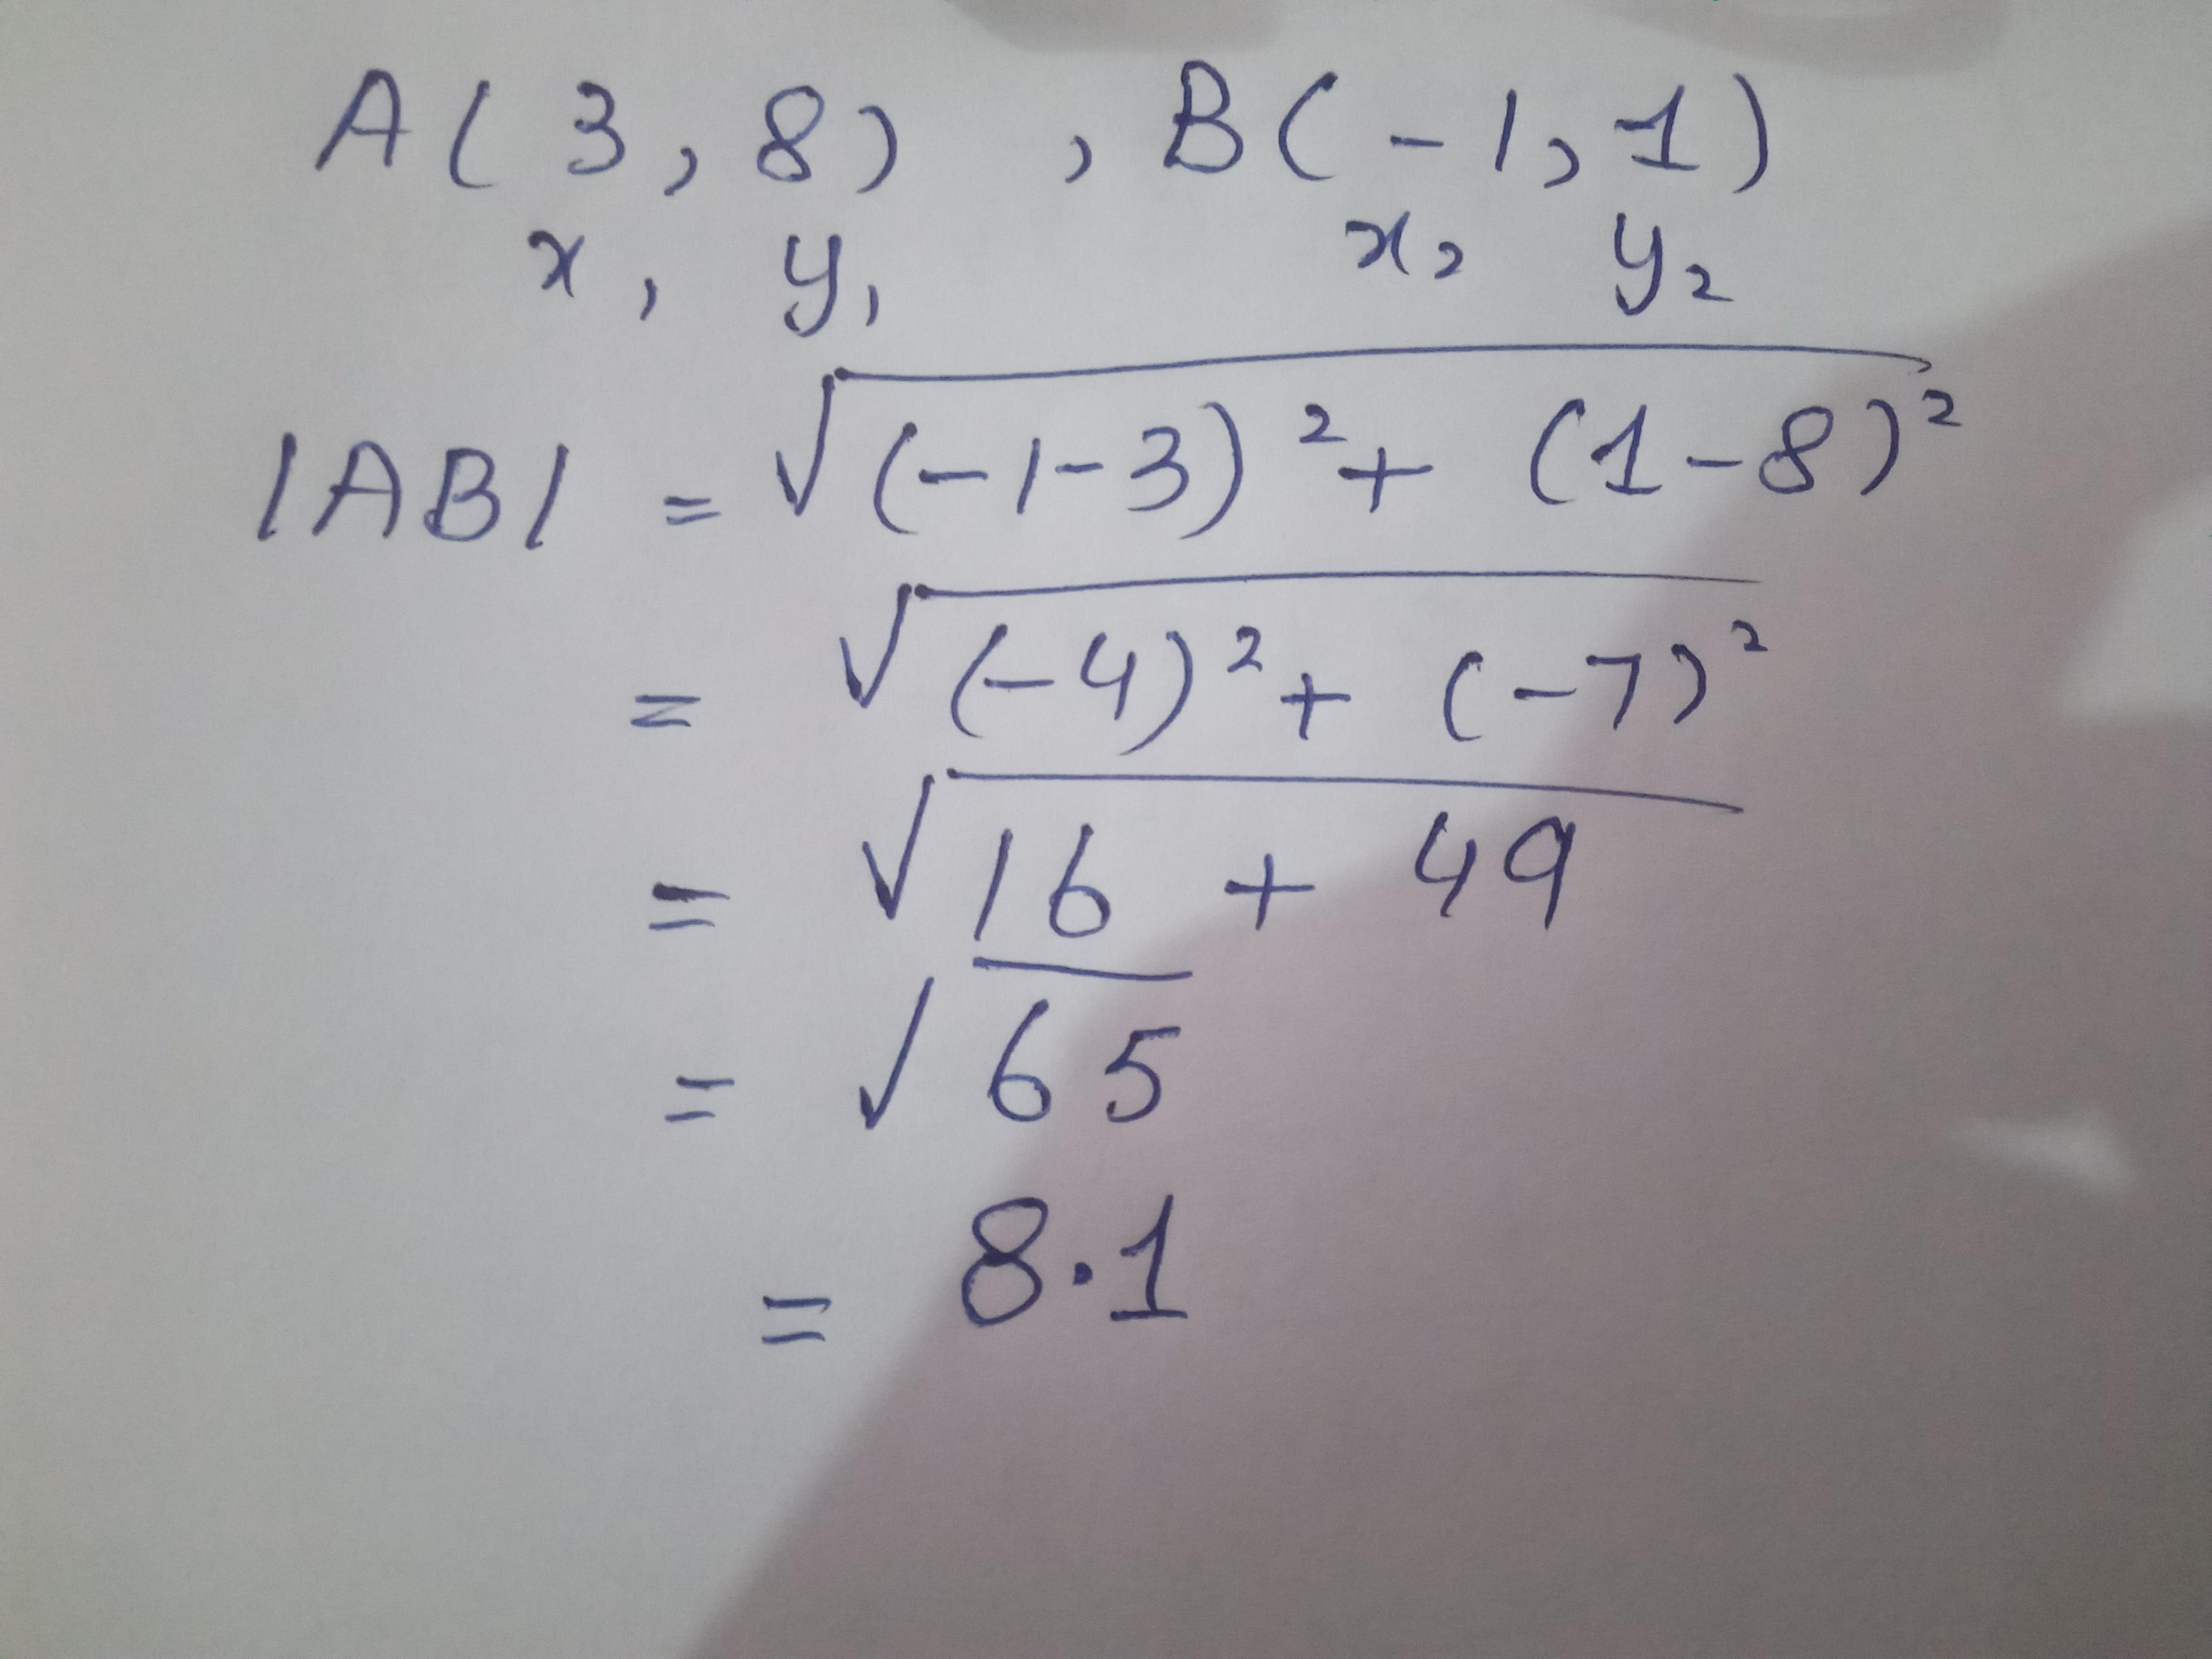 A( 3 , 8 ) , B( -1 , 1 )
x₁ y₁ x₂ y₂
|AB| = √(-1-3)² + (1-8)²
= √(-4)² + (-7)²
= √16 + 49
= √65
= 8.1